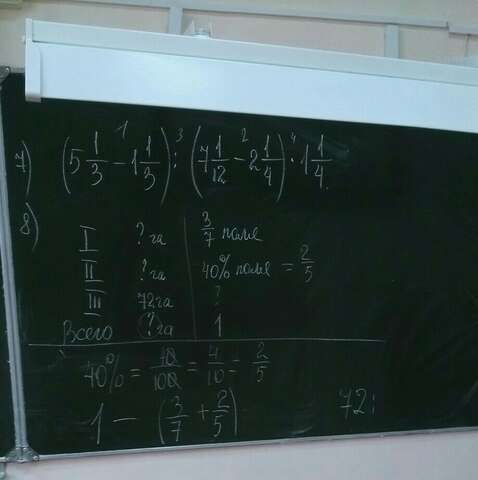 7) (5 1/3 - 1 1/3) : (7 1/12 - 2 1/4) · 1 1/4
1 3 2 4
8)
I ? га 3/7 поля
II ? га 40% поля = 2/5
III 72 га ?
Всего ? га 1
40% = 40/100 = 4/10 = 2/5
1 - (3/7 + 2/5) 72 :